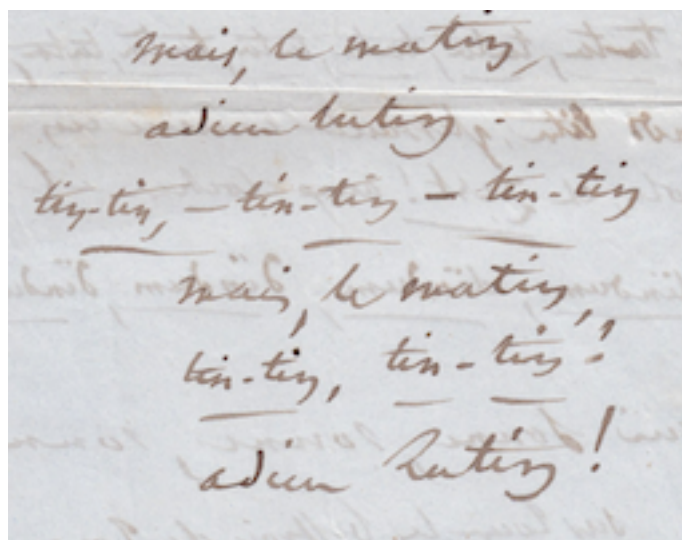 mais, le matin,
adieu lutin.
tin-tin, — tin-tin — tin-tin
mais, le matin,
tin-tin, tin-tin!
adieu lutin!